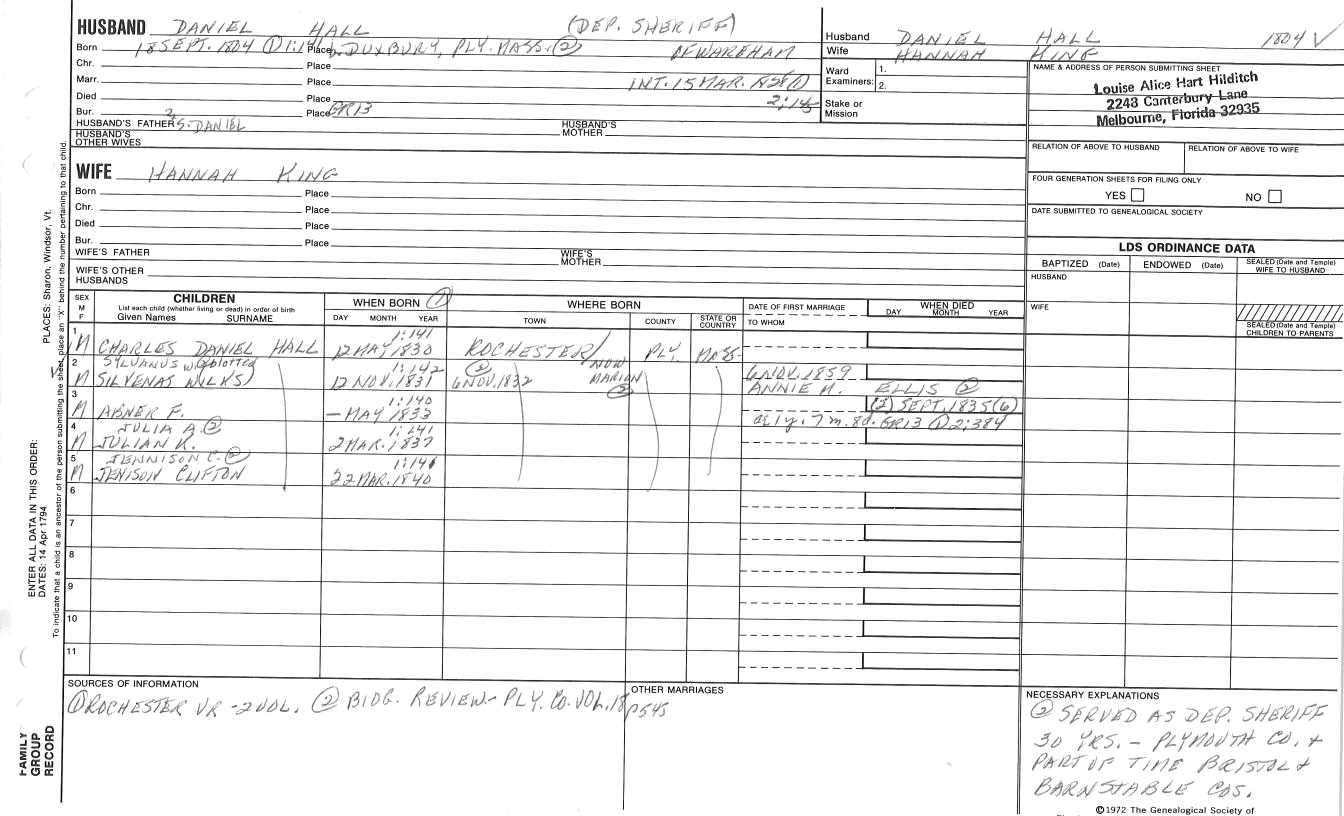 HUSBAND DANIEL HALL (DEP. SHERIFF)
Born 18 SEPT. 1804 ① 1:14 Place DUXBURY, PLY. MASS. ② OF WAREHAM
Chr. Place
Marr. Place INT. 15 MAR.
Died Place 2:145
Bur. Place GR13
HUSBAND'S FATHER S. DANIEL HUSBAND'S MOTHER
HUSBAND'S OTHER WIVES
Husband DANIEL HALL 1804 V
Wife HANNAH KING
Ward Examiners: 1.
2.
Stake or Mission
NAME & ADDRESS OF PERSON SUBMITTING SHEET
Louise Alice Hart Hilditch
2243 Canterbury Lane
Melbourne, Florida 32935
RELATION OF ABOVE TO HUSBAND RELATION OF ABOVE TO WIFE
FOUR GENERATION SHEETS FOR FILING ONLY
YES NO
DATE SUBMITTED TO GENEALOGICAL SOCIETY
WIFE HANNAH KING
Born Place
Chr. Place
Died Place
Bur. Place
WIFE'S FATHER WIFE'S MOTHER
WIFE'S OTHER HUSBANDS
LDS ORDINANCE DATA
BAPTIZED (Date) ENDOWED (Date) SEALED (Date and Temple) WIFE TO HUSBAND
HUSBAND
WIFE
SEALED (Date and Temple) CHILDREN TO PARENTS
SEX M F
CHILDREN
List each child (whether living or dead) in order of birth
Given Names SURNAME
WHEN BORN ①
DAY MONTH YEAR
WHERE BORN
TOWN COUNTY STATE OR COUNTRY
DATE OF FIRST MARRIAGE
TO WHOM
WHEN DIED
DAY MONTH YEAR
1 M CHARLES DANIEL HALL 1:141 12 MAY 1830 ROCHESTER PLY. MASS.
2 SYLVANUS W. ② blotted 1:142 ② NOW 6 NOV. 1859
M SILVENAS WILKS 12 NOV. 1831 6 NOV. 1832 MARION ② ANNIE M. ELLIS ②
3 1:140 SEPT. 1835 (6)
M ABNER F. – MAY 1833
4 JULIA A. ② 1:141 a. 1 y. 7 m. 8 d. GR13 ① 2:384
M JULIAN R. 2 MAR. 1837
5 JENNISON C. ② 1:141
M JENISON CLIFTON 22 MAR. 1840
6
7
8
9
10
11
SOURCES OF INFORMATION
① ROCHESTER VR – 2 VOL. ② BIOG. REVIEW – PLY. CO. VOL. 18 p 545
OTHER MARRIAGES
NECESSARY EXPLANATIONS
② SERVED AS DEP. SHERIFF
30 YRS. – PLYMOUTH CO. +
PART OF TIME BRISTOL +
BARNSTABLE COS.
©1972 The Genealogical Society of
PLACES: Sharon, Windsor, Vt.
To indicate that a child is an ancestor of the person submitting the sheet, place an "X" behind the number pertaining to that child.
ENTER ALL DATA IN THIS ORDER:
DATES: 14 Apr 1794
FAMILY
GROUP
RECORD